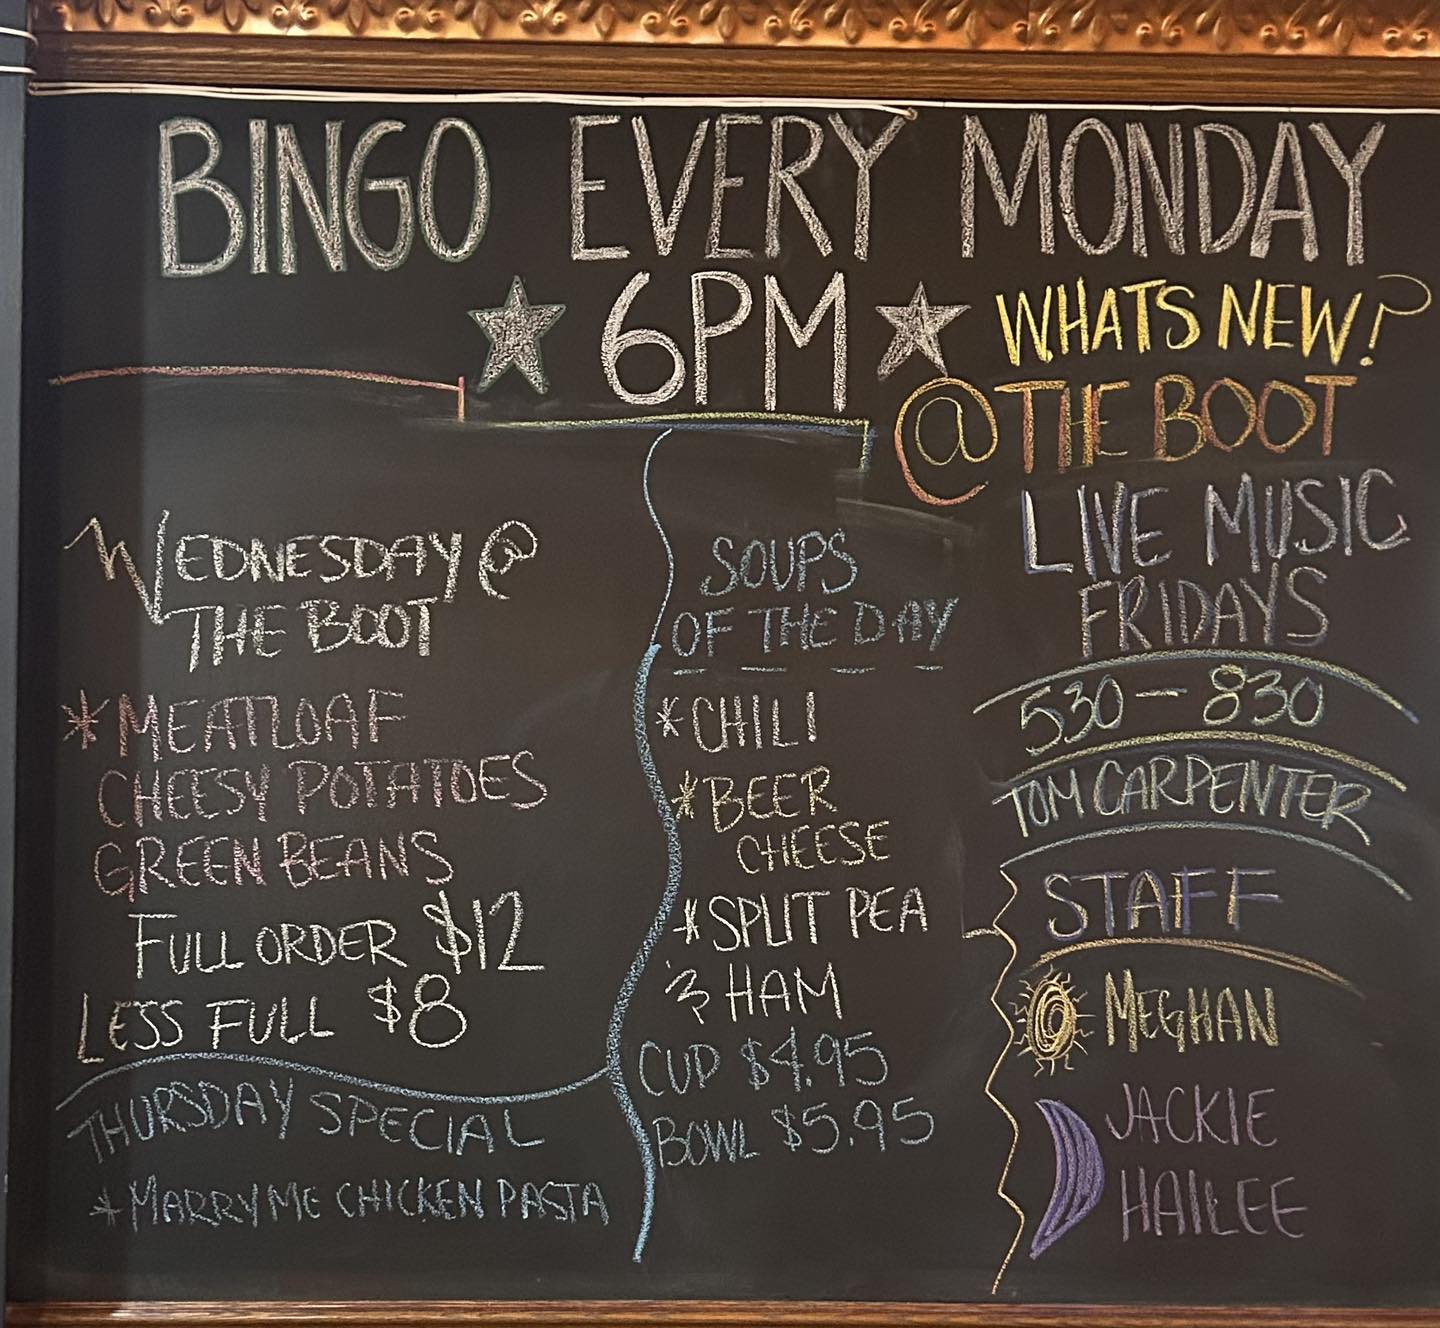 BINGO EVERY MONDAY
6PM
WEDNESDAY @
THE BOOT
*MEATLOAF
CHEESY POTATOES
GREEN BEANS
FULL ORDER $12
LESS FULL $8
THURSDAY SPECIAL
*MARRY ME CHICKEN PASTA
SOUPS
OF THE DAY
*CHILI
*BEER
CHEESE
*SPLIT PEA
& HAM
CUP $4.95
BOWL $5.95
WHATS NEW?
@THE BOOT
LIVE MUSIC
FRIDAYS
530 - 830
TOM CARPENTER
STAFF
MEGHAN
JACKIE
HAILEE